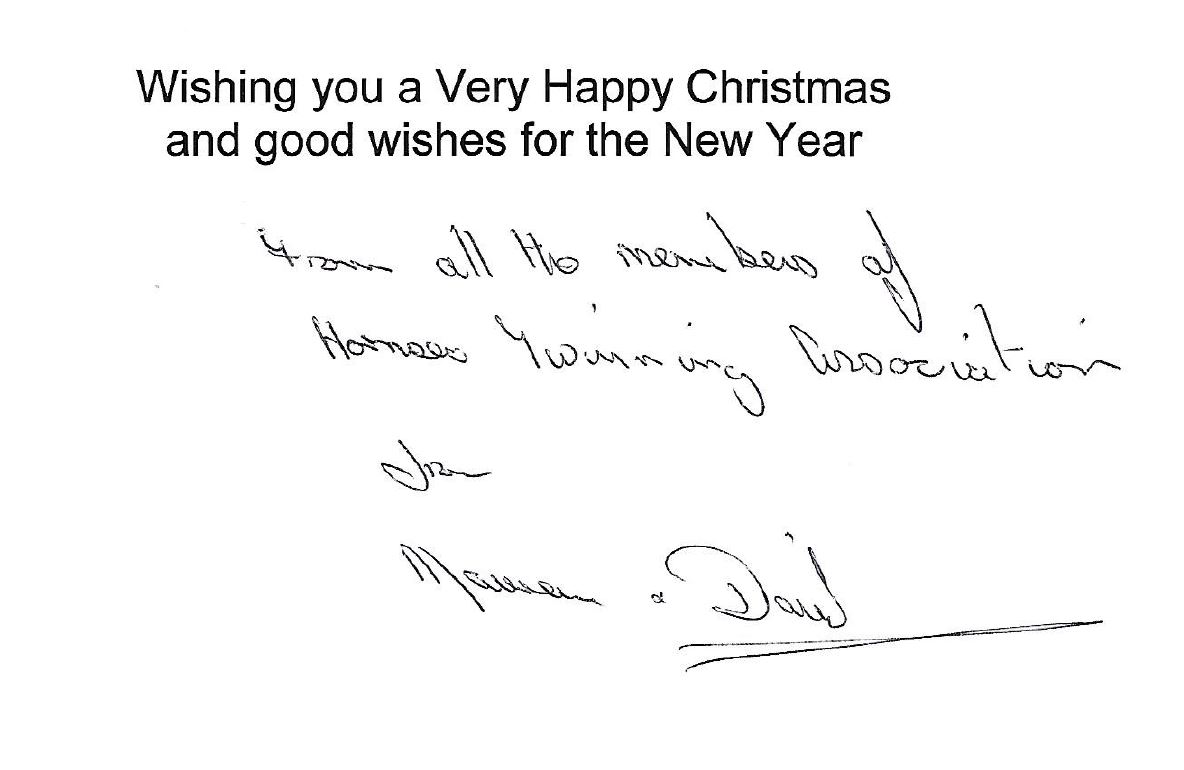 Wishing you a Very Happy Christmas
and good wishes for the New Year
From all the members of
Hornsea Twinning Association
from
Maureen & David